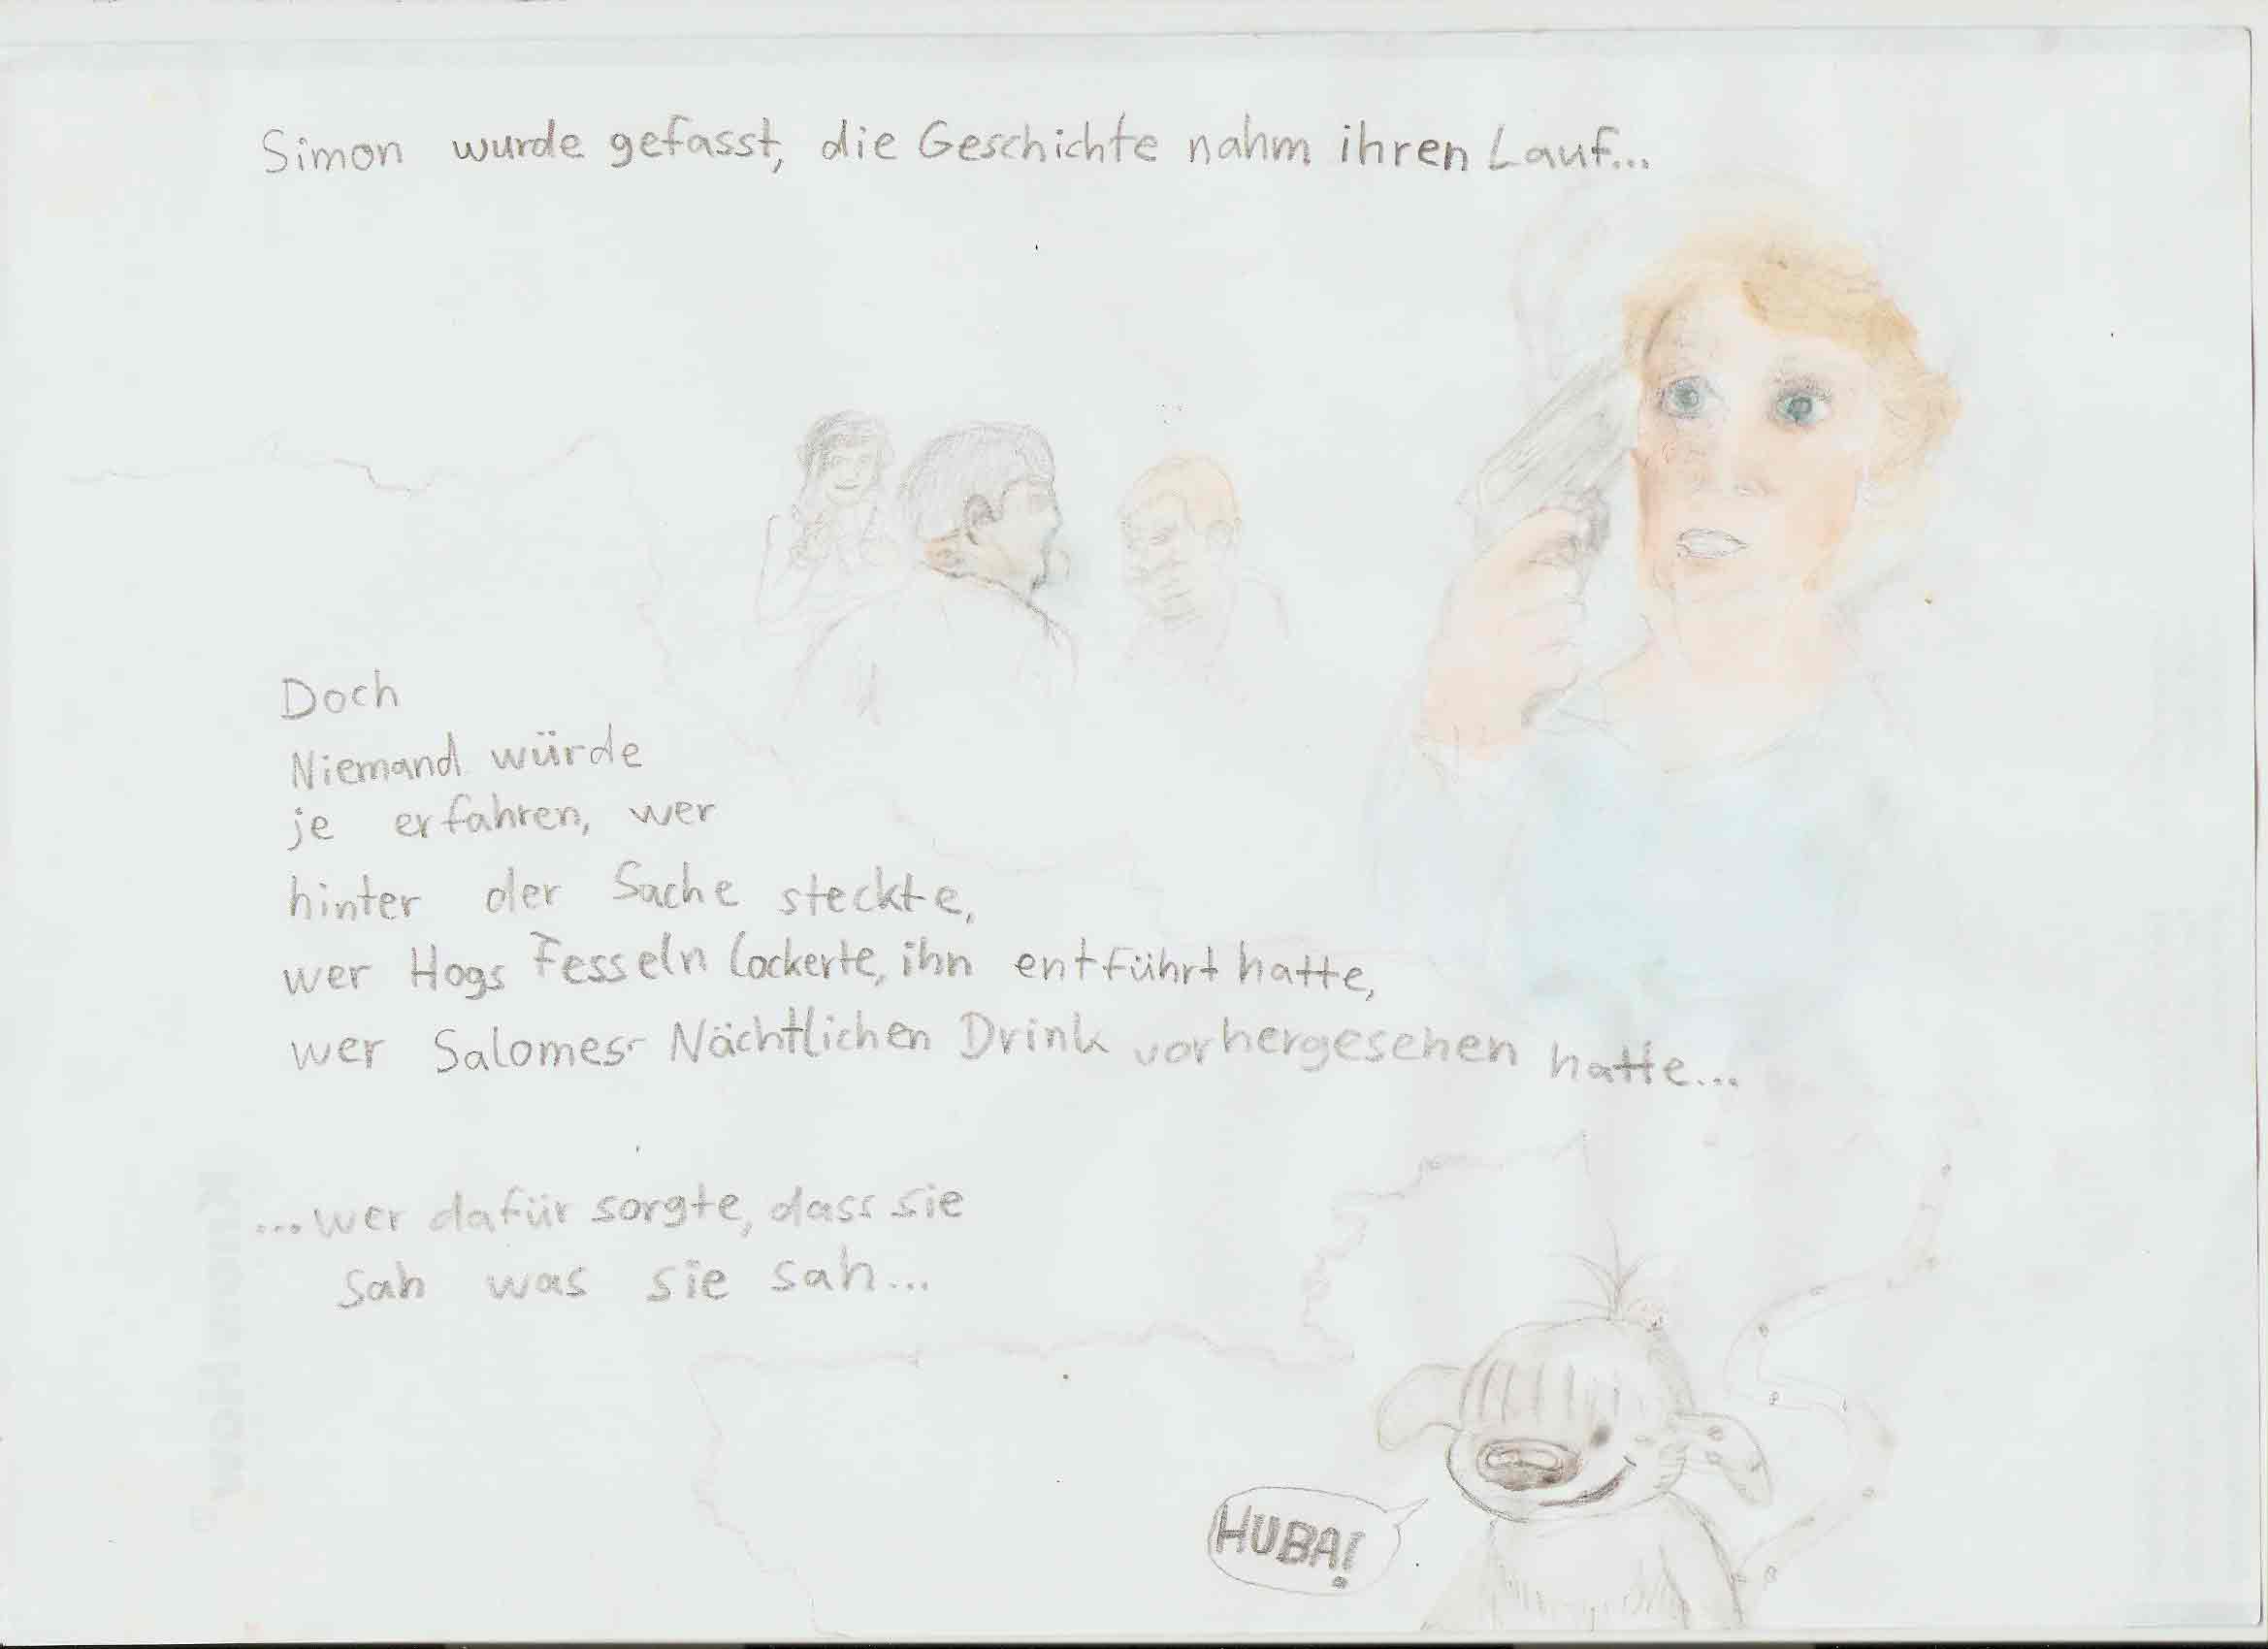 Simon wurde gefasst, die Geschichte nahm ihren Lauf...
Doch
Niemand würde
je erfahren, wer
hinter der Sache steckte,
wer Hogs Fesseln lockerte, ihn entführt hatte,
wer Salomes Nächtlichen Drink vorhergesehen hatte...
...wer dafür sorgte, dass sie
sah was sie sah...
HUBA!